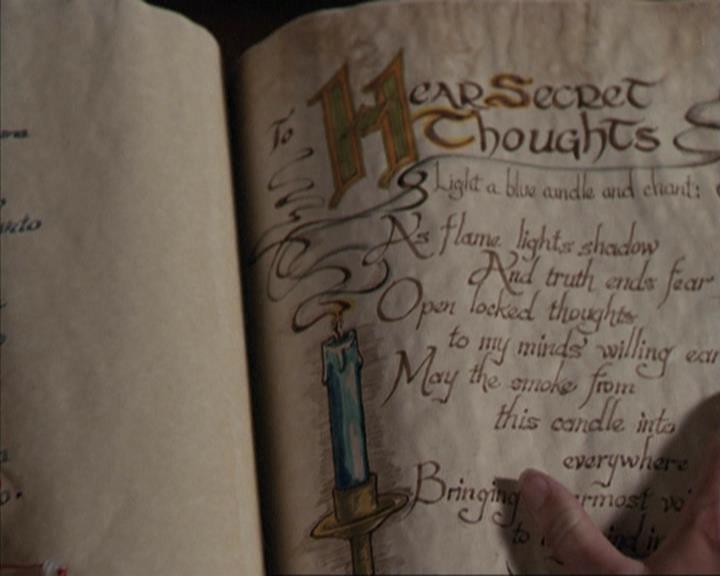 To Hear Secret
Thoughts
Light a blue candle and chant:
As flame lights shadow
And truth ends fear
Open locked thoughts
to my minds' willing ear
May the smoke from
this candle into
everywhere
Bringing
to